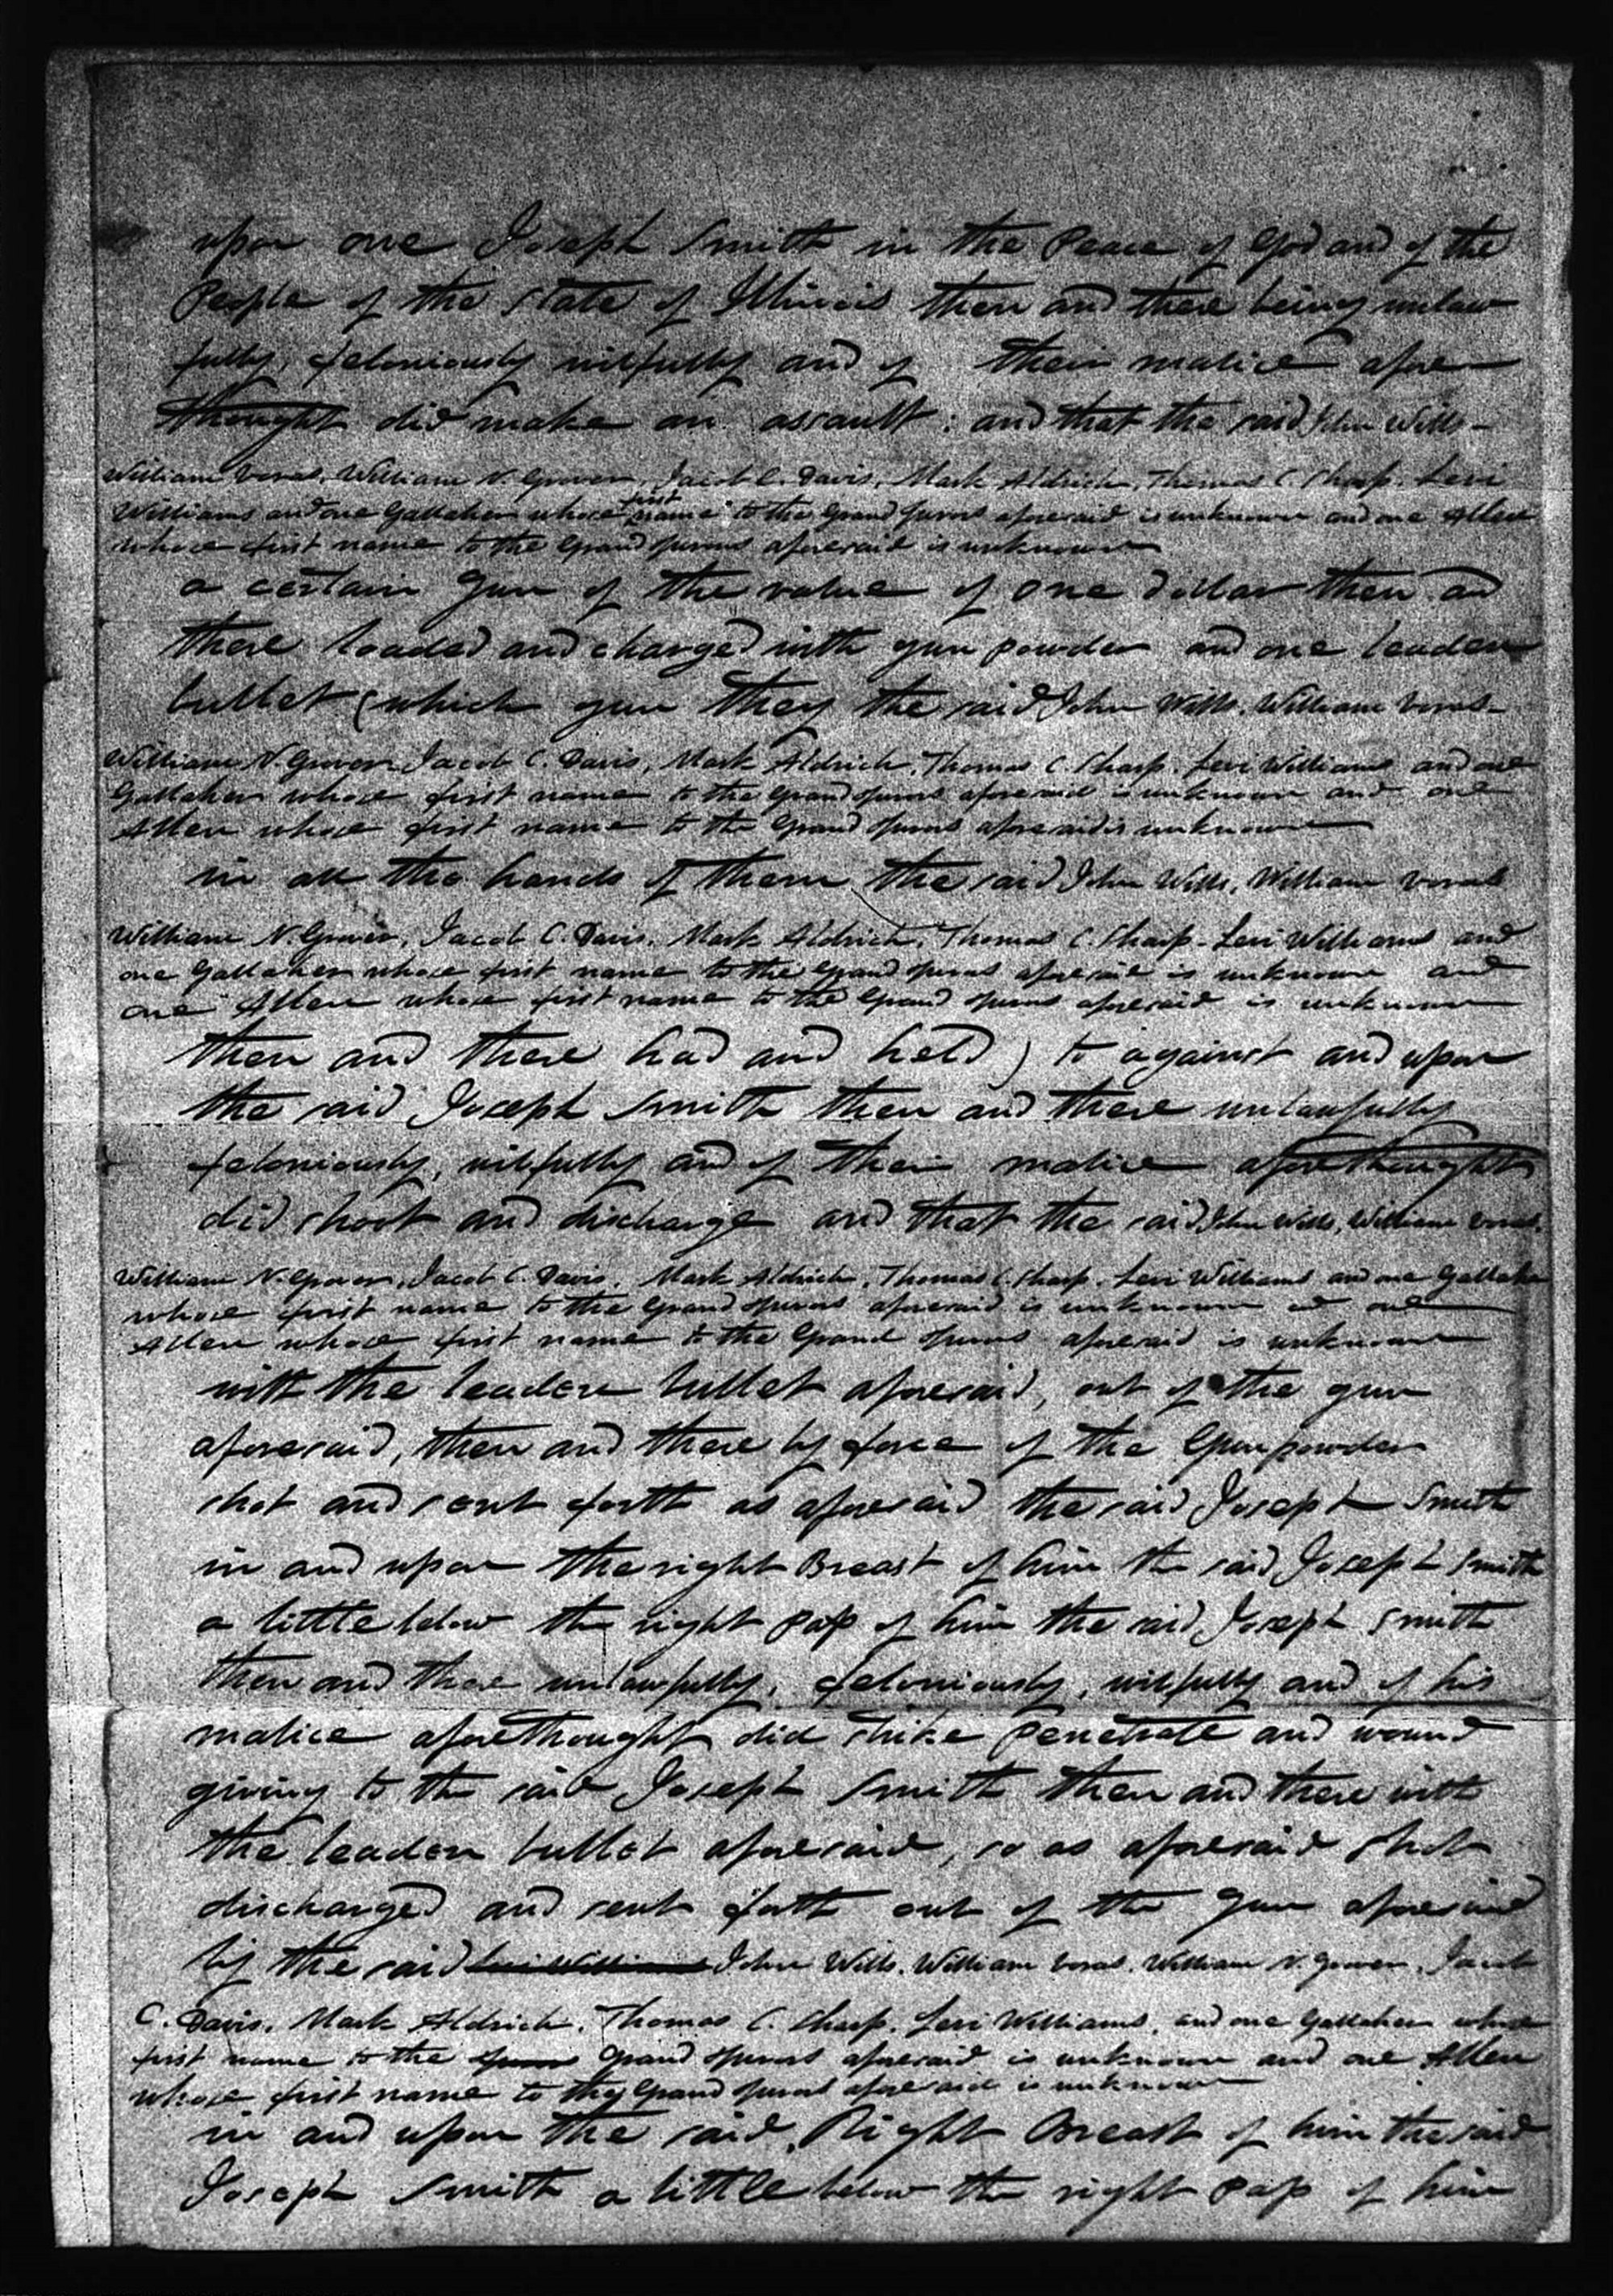 upon one Joseph Smith in the Peace of God and of the
People of the State of Illinois then and there being unlaw
fully, feloniously wilfully and of their malice afore-
thought did make an assault; and that the said John Wills-
William Voras, William N. Grover, Jacob C. Davis, Mark Aldrich, Thomas C. Sharp, Levi
Williams and one Gallaher whose first name to the Grand Jurors aforesaid is unknown and one Allen
whose first name to the Grand Jurors aforesaid is unknown
a certain Gun of the value of one dollar then and
there loaded and charged with gun powder and one leaden
bullet (which gun they the said John Wills, William Voras-
William N. Grover Jacob C. Davis, Mark Aldrich, Thomas C. Sharp, Levi Williams and one
Gallaher whose first name to the Grand Jurors aforesaid is unknown and one
Allen whose first name to the Grand Jurors aforesaid is unknown
in all the hands of them the said John Wills, William Voras
William N. Grover, Jacob C. Davis, Mark Aldrich, Thomas C. Sharp- Levi Williams and
one Gallaher whose first name to the Grand Jurors aforesaid is unknown and
one Allen whose first name to the Grand Jurors aforesaid is unknown
then and there had and held) to against and upon
the said Joseph Smith then and there unlawfully
feloniously, wilfully and of their malice aforethought
did shoot and discharge and that the said John Wills, William Voras,
William N. Grover, Jacob C. Davis, Mark Aldrich, Thomas C. Sharp, Levi Williams and one Gallaher
whose first name to the Grand Jurors aforesaid is unknown and one
Allen whose first name to the Grand Jurors aforesaid is unknown
with the leaden bullet aforesaid, out of the gun
aforesaid, then and there by force of the Gunpowder
shot and sent forth as aforesaid the said Joseph Smith
in and upon the right Breast of him the said Joseph Smith
a little below the right pap of him the said Joseph Smith
then and there unlawfully, feloniously, wilfully and of his
malice aforethought did strike penetrate and wound
giving to the said Joseph Smith then and there with
the leaden bullet aforesaid, so as aforesaid shot
discharged and sent forth out of the Gun aforesaid
by the said Levi Williams John Wills, William Voras, William N. Grover, Jacob
C. Davis, Mark Aldrich, Thomas C. Sharp, Levi Williams, and one Gallaher whose
first name to the Grand Jurors aforesaid is unknown and one Allen
whose first name to the Grand Jurors aforesaid is unknown
in and upon the said Right Breast of him the said
Joseph Smith a little below the right pap of him